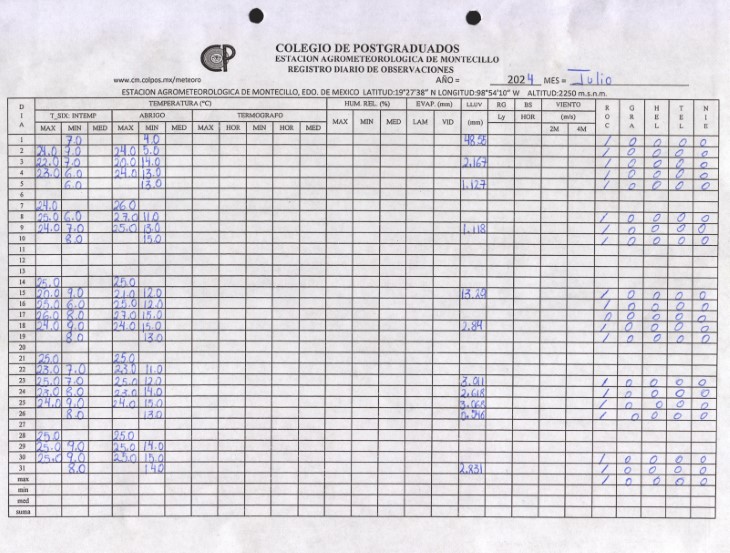 CP
COLEGIO DE POSTGRADUADOS
ESTACION AGROMETEOROLOGICA DE MONTECILLO
REGISTRO DIARIO DE OBSERVACIONES
www.cm.colpos.mx/meteoro AÑO = 2024 MES = Julio
ESTACION AGROMETEOROLOGICA DE MONTECILLO, EDO. DE MEXICO LATITUD:19°27'38" N LONGITUD:98°54'10" W ALTITUD:2250 m.s.n.m.
DIA TEMPERATURA (°C) HUM. REL. (%) EVAP. (mm) LLUV RG BS VIENTO ROC GRA HEL TEL NIE
T_SIX: INTEMP ABRIGO TERMOGRAFO (mm) Ly HOR (m/s)
MAX MIN MED MAX MIN MED MAX HOR MIN HOR MED MAX MIN MED LAM VID 2M 4M
1 7.0 4.0 48.58 / 0 0 0 0
2 24.0 7.0 24.0 5.0 / 0 0 0 0
3 22.0 7.0 20.0 14.0 2.167 / 0 0 0 0
4 23.0 6.0 24.0 13.0 / 0 0 0 0
5 6.0 13.0 1.127 / 0 0 0 0
6
7 24.0 26.0
8 25.0 6.0 27.0 11.0 / 0 0 0 0
9 24.0 7.0 25.0 13.0 1.118 / 0 0 0 0
10 8.0 15.0 / 0 0 0 0
11
12
13
14 25.0 25.0
15 20.0 9.0 21.0 12.0 13.29 / 0 0 0 0
16 25.0 6.0 25.0 12.0 / 0 0 0 0
17 26.0 8.0 27.0 15.0 0 0 0 0 0
18 24.0 9.0 24.0 15.0 2.84 / 0 0 0 0
19 8.0 13.0 / 0 0 0 0
20
21 25.0 25.0
22 23.0 7.0 23.0 11.0 / 0 0 0 0
23 25.0 7.0 25.0 12.0 3.011 / 0 0 0 0
24 23.0 8.0 23.0 14.0 2.618 / 0 0 0 0
25 24.0 9.0 24.0 15.0 3.068 / 0 0 0 0
26 8.0 13.0 0.546 / 0 0 0 0
27
28 25.0 25.0
29 25.0 9.0 25.0 14.0
30 25.0 9.0 25.0 15.0 / 0 0 0 0
31 8.0 14.0 2.831 / 0 0 0 0
max / 0 0 0 0
min
med
suma